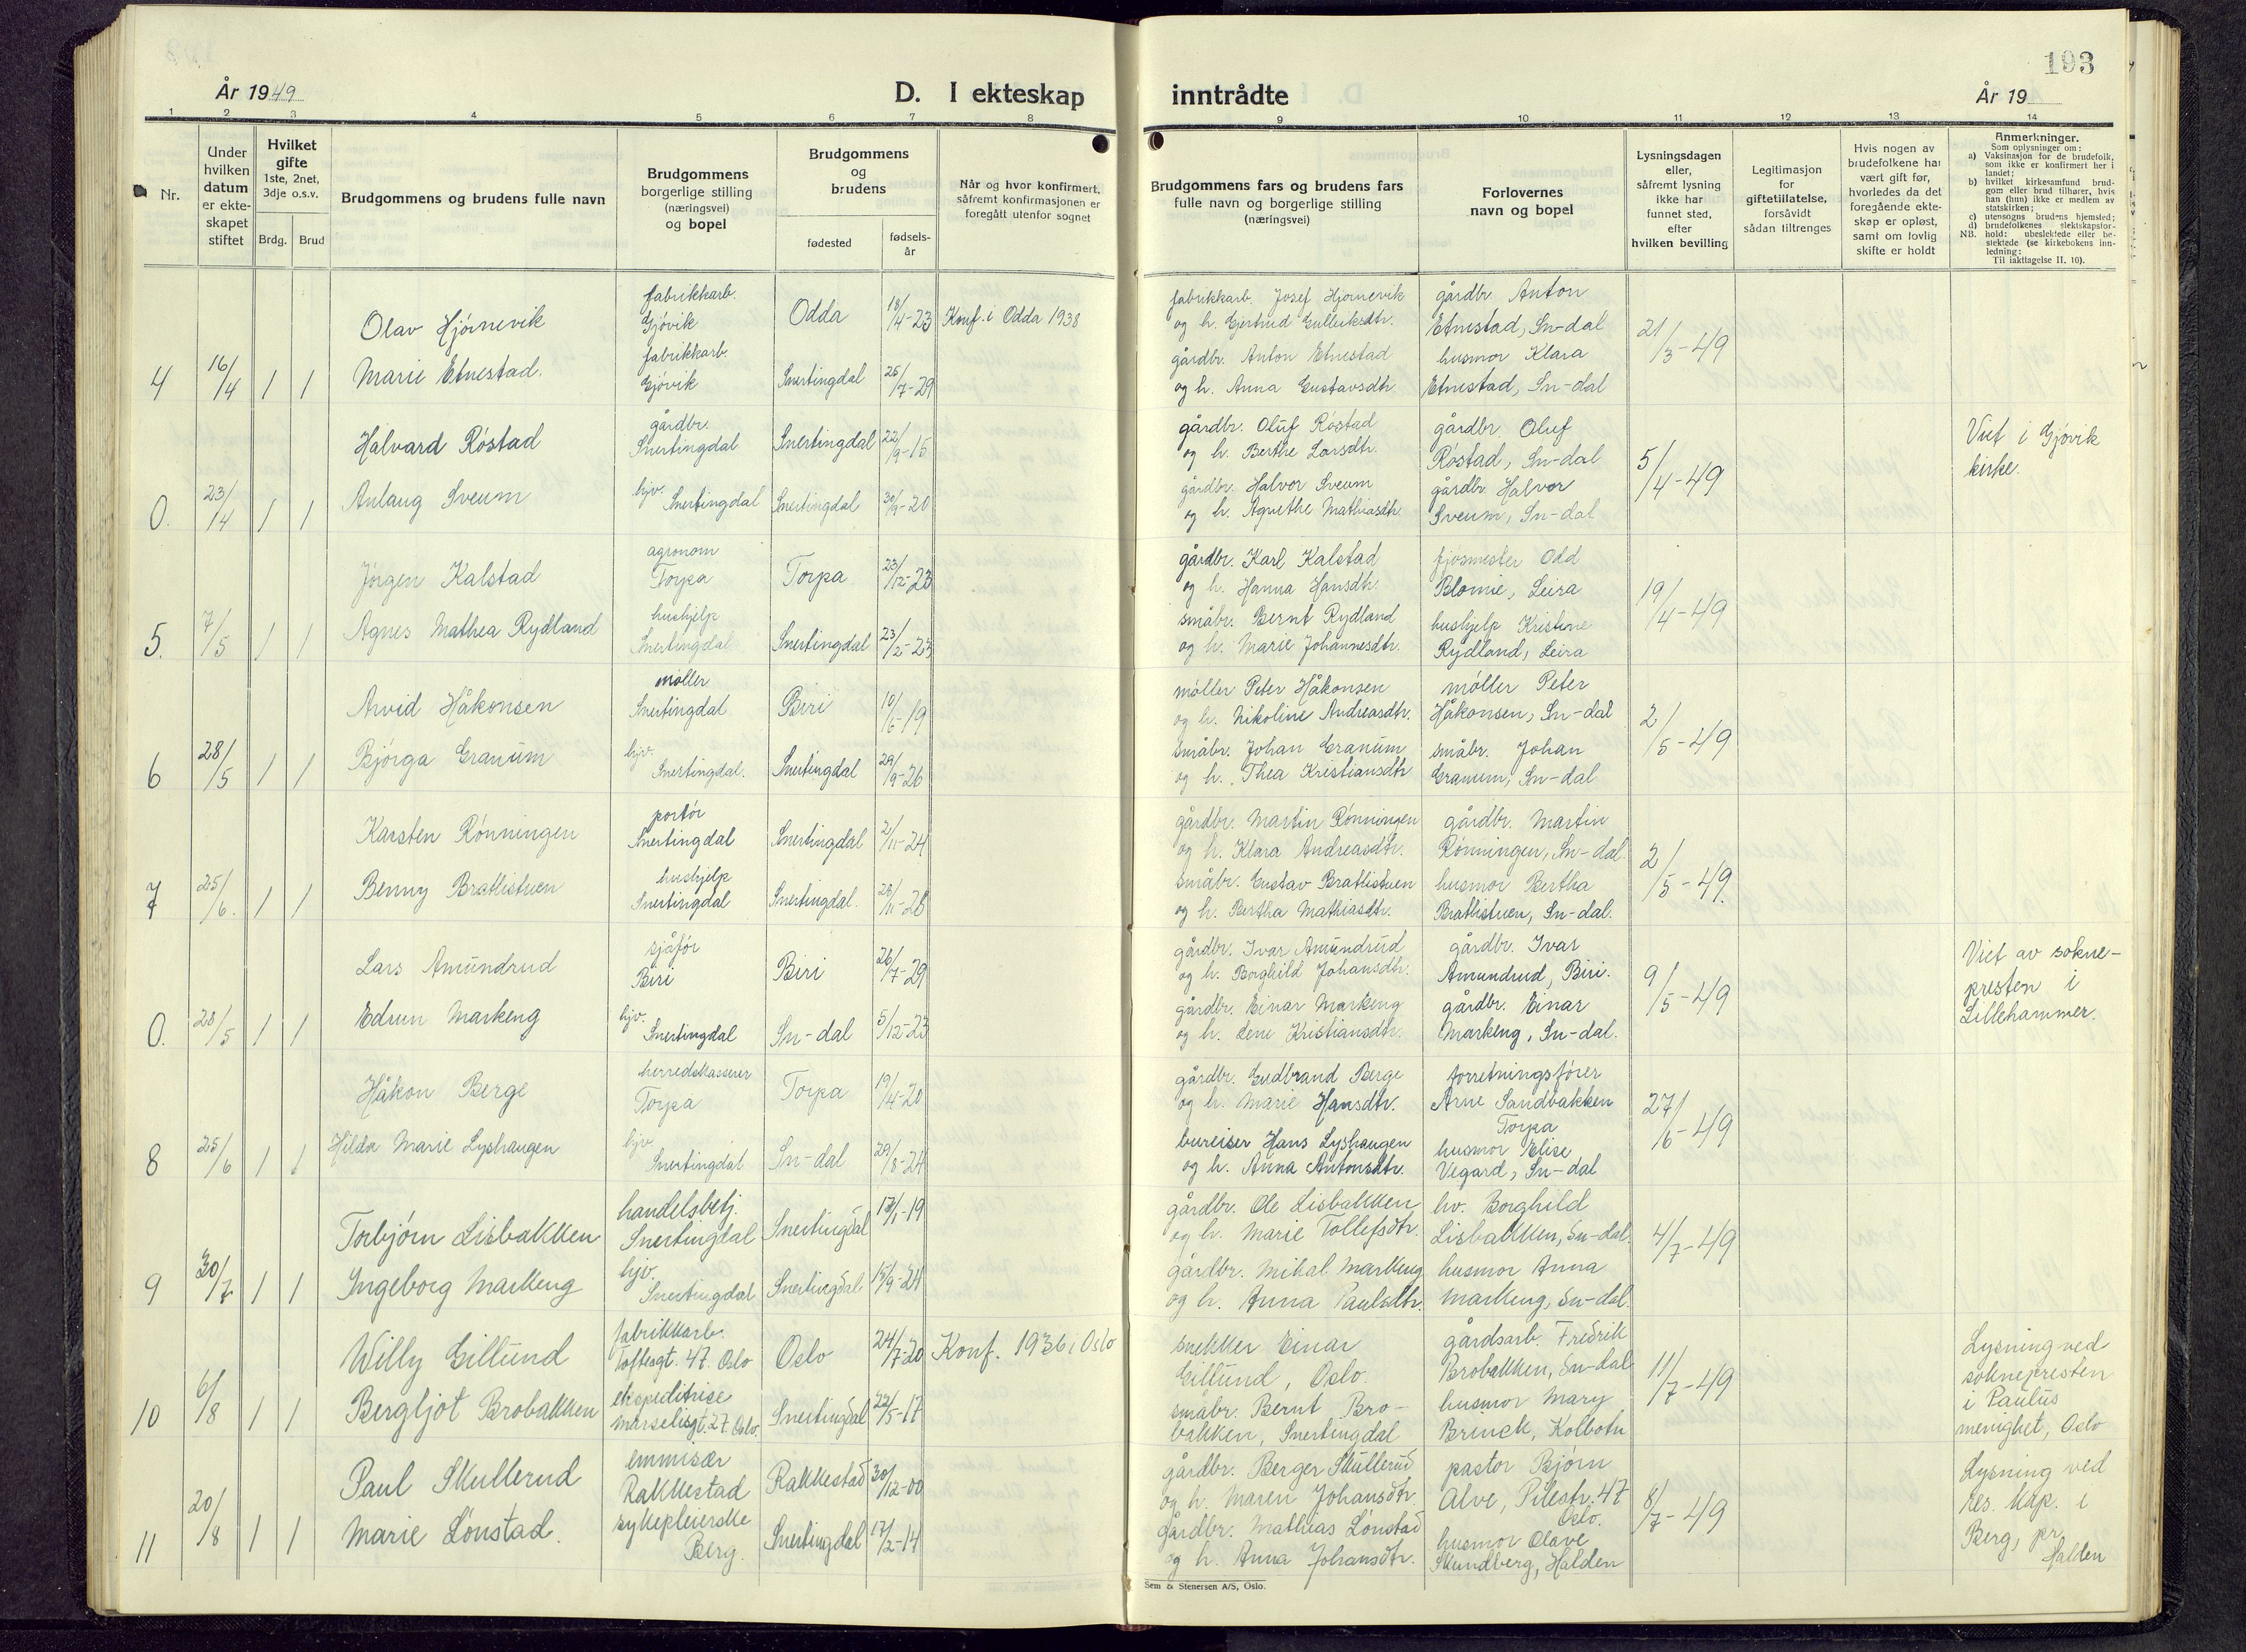 193
År 1949
D. I ekteskap
inntrådte
År 19
1
2
3
4
5
6
7
8
9
10
11
12
13
14
Nr.
Under
hvilken
datum
er ekte-
skapet
stiftet
Hvilket
gifte
1ste, 2net,
3dje o.s.v.
Brdg.
Brud
Brudgommens og brudens fulle navn
Brudgommens
borgerlige stilling
(næringsvei)
og bopel
Brudgommens
og
brudens
fødested
fødsels-
år
Når og hvor konfirmert,
såfremt konfirmasjonen er
foregått utenfor sognet
Brudgommens fars og brudens fars
fulle navn og borgerlige stilling
(næringsvei)
Forlovernes
navn og bopel
Lysningsdagen
eller,
såfremt lysning
ikke har
funnet sted,
efter
hvilken bevilling
Legitimasjon
for
giftetillatelse,
forsåvidt
sådan tiltrenges
Hvis nogen av
brudefolkene har
vært gift før,
hvorledes da det
foregående ekte-
skap er opløst,
samt om lovlig
skifte er holdt
Anmerkninger.
Som oplysninger om:
a) Vaksinasjon for de brudefolk,
som ikke er konfirmert her i
landet;
b) hvilket kirkesamfund brud-
gom eller brud tilhører, hvis
han (hun) ikke er medlem av
statskirken;
c) utensogns brudens hjemsted;
d) brudefolkenes slektskapsfor-
NB. hold: ubeslektede eller be-
slektede (se kirkebokens inn-
ledning:
Til iakttagelse II. 10).
4
16/4
1
1
Olav Hjørnevik
Marie Etnestad.
fabrikkarb.
Gjøvik
fabrikkarb.
Gjøvik
Odda
Snertingdal
18/4-23
25/7-29
Konf. i Odda 1938
fabrikkarb. Josef Hjørnevik
og h. Gjertrud Gulleiksdtr.
gårdbr. Anton Etnestad
og h. Anna Gustavsdtr.
gårdbr. Anton
Etnestad, Sn-dal
husmor Klara
Etnestad, Sn-dal
21/3-49
0.
23/4
1
1
Halvard Røstad
Aulaug Sveum
gårdbr.
Snertingdal
hjv.
Snertingdal
Snertingdal
Snertingdal
22/9-15
30/9-20
gårdbr. Oluf Røstad
og h. Berthe Larsdtr.
gårdbr. Halvor Sveum
og h. Agnethe Mathiasdtr.
gårdbr. Oluf
Røstad, Sn-dal
gårdbr. Halvor
Sveum, Sn-dal
5/4-49
Viet i Gjøvik
kirke.
5.
7/5
1
1
Jørgen Kalstad
Agnes Mathea Rydland
agronom
Torpa
hushjelp
Snertingdal
Torpa
Snertingdal
23/12-23
23/2-23
gårdbr. Karl Kalstad
og h. Hanna Hansdtr.
småbr. Bernt Rydland
og h. Marie Johannesdtr.
fjøsmester Odd
Blomie, Leira
hushjelp Kristine
Rydland, Leira
19/4-49
6
28/5
1
1
Arvid Håkonsen
Bjørga Granum
møller
Snertingdal
hjv.
Snertingdal.
Biri
Snertingdal
10/6-19
29/9-26
møller Peter Håkonsen
og h. Nikoline Andreasdtr.
småbr. Johan Granum
og h. Thea Kristiansdtr
møller Peter
Håkonsen, Sn-dal
småbr. Johan
Granum, Sn-dal
2/5-49
7
25/6.
1
1
Karsten Rønningen
Benny Bratlistuen
portør
Snertingdal
hushjelp
Snertingdal
Snertingdal
Snertingdal.
2/11-24
28/11-28
gårdbr. Martin Rønningen
og h. Klara Andreasdtr.
småbr. Gustav Bratlistuen
og h. Bertha Mathiasdtr.
gårdbr. Martin
Rønningen, Sn-dal.
husmor Bertha
Bratlistuen, Sn-dal.
2/5-49.
0.
28/5
1
1
Lars Amundrud
Edrun Markeng
sjåfør
Biri
hjv.
Snertingdal
Biri
Sn-dal
26/7-29
5/12-23
gårdbr. Ivar Amundrud
og h. Borghild Johansdtr.
gårdbr. Einar Markeng
og h. Lene Kristiansdtr.
gårdbr. Ivar
Amundrud, Biri.
gårdbr. Einar
Markeng, Sn-dal.
9/5-49
Viet av sokne-
presten i
Lillehammer.
8
25/6
1
1
Håkon Berge
Hilda Marie Lyshaugen
herredskasserer
Torpa
hjv
Snertingdal
Torpa
Sn-dal
19/4-20
29/8-24
gårdbr. Gudbrand Berge
og h. Marie Hansdtr.
bureiser Hans Lyshaugen
og h. Anna Antonsdtr.
forretningsfører
Arne Sandbakken
Torpa
husmor Elise
Vegard, Sn-dal
27/6-49
9
30/7
1
1
Torbjørn Lisbakken
Ingeborg Markeng
handelsbetj.
Snertingdal
hjv.
Snertingdal
Snertingdal
Snertingdal
/1-19
15/9-24
gårdbr. Ole Lisbakken
og h. Marie Tollefsdtr.
gårdbr. Mikal Markeng
og h. Anna Paulsdtr.
hv. Borghild
Lisbakken, Sn-dal.
husmor Anna
Markeng, Sn-dal.
4/7-49
10
6/8
1
1
Willy Gillund
Bergljot Brobakken
fabrikkarb.
Toftesgt. 47. Oslo
ekspeditrise
Marselisgt. 27. Oslo.
Oslo
Snertingdal
24/7-20
22/5-17
Konf. 1936 i Oslo
snekker Einar
Gillund, Oslo.
småbr. Bernt Bro-
bakken, Snertingdal
gårdsarb. Fredrik
Brobakken, Sn-dal
husmor Mary
Brinck, Kolbotn
11/7-49
Lysning ved
soknepresten
i Paulus
menighet, Oslo
11
20/8
1
1
Paul Skullerud
Marie Lønstad.
emmisær
Rakkestad
sykepleierske
Berg.
Rakkestad
Snertingdal
30/12-00
17/2-14
gårdbr. Berger Skullerud
og h. Maren Johansdtr.
gårdbr. Mathias Lønstad
og h. Anna Johansdtr.
pastor Bjørn
Alve, Pilestr. 47
Oslo.
husmor Olave
Skundberg, Halden
8/7-49
Lysning ved
res. kap. i
Berg, pr.
Halden
Sem & Stenersen A/S, Oslo.